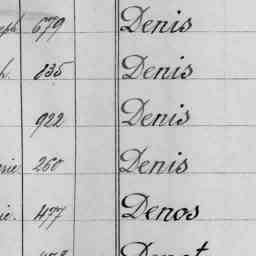 679 Denis
835 Denis
922 Denis
260 Denis
477 Denos